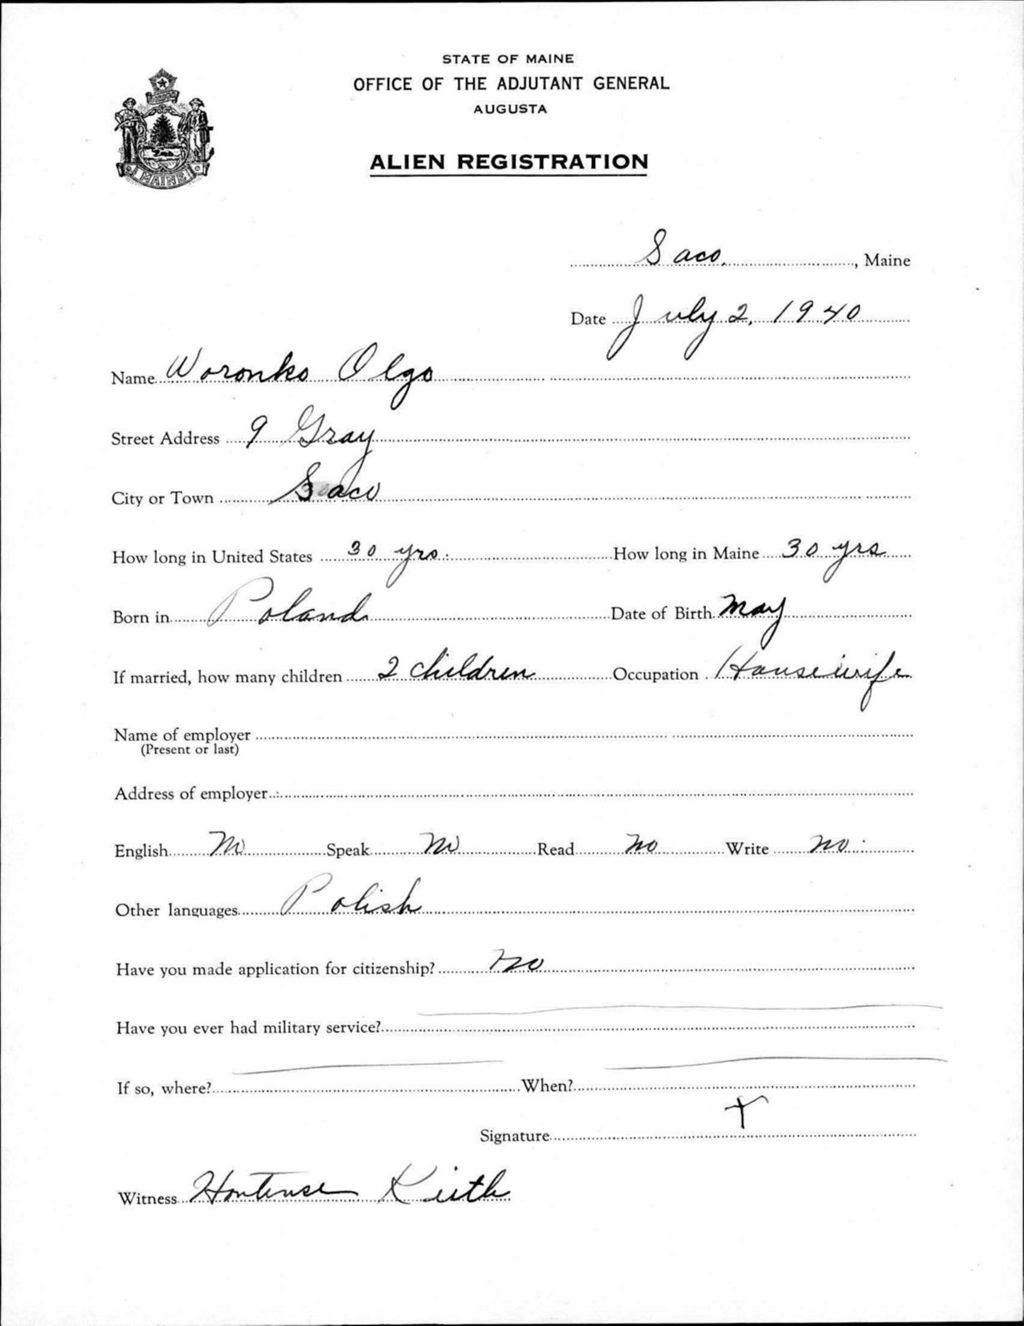 STATE OF MAINE
OFFICE OF THE ADJUTANT GENERAL
AUGUSTA
MAINE
ALIEN REGISTRATION
Saco, Maine
Date July 2, 1940
Name Woronko Olga
Street Address 9 Gray
City or Town Saco
How long in United States 30 yrs. How long in Maine 30 yrs
Born in Poland Date of Birth May
If married, how many children 2 children Occupation Housewife
Name of employer
(Present or last)
Address of employer
English No Speak No Read No Write No.
Other languages Polish
Have you made application for citizenship? No
Have you ever had military service?
If so, where? When?
Signature X
Witness Hortense Keith